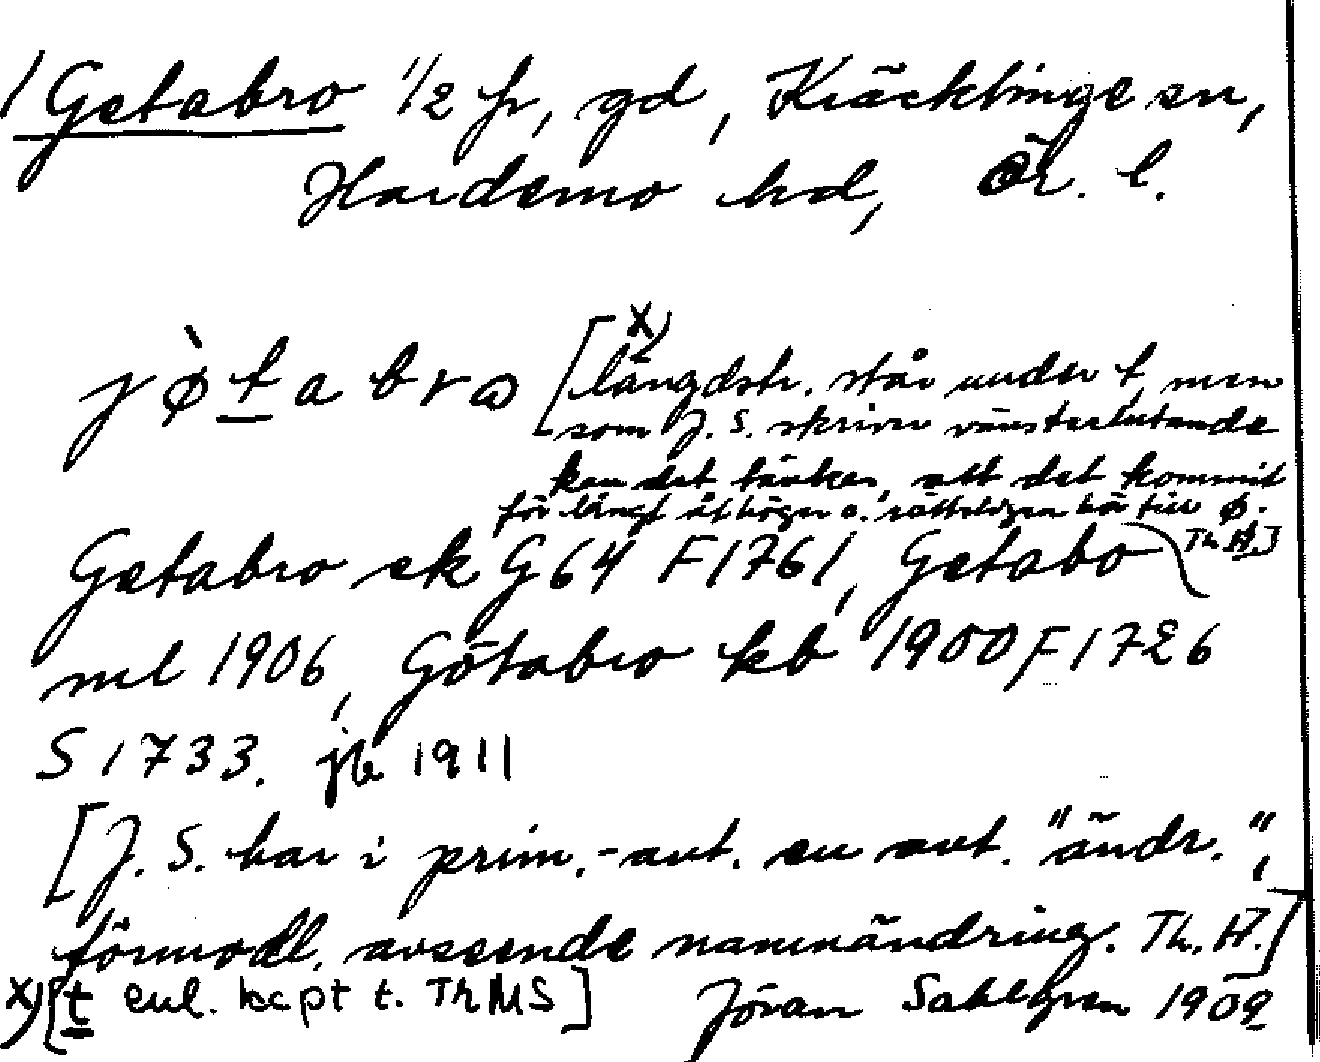 / Getabro 1/2 hr, gd, Kräcklinge sn,
Hardemo hd, Ör. l.
x)
j ø̀ t a b r ω [längdstr. står under t, men
som J. S. skriver vänsterlutande
kan det tänkas, att det kommit
för långt åt höger o. rätteligen hör till ø.
Th. H.]
Getabro ek G64 F1761, Getabo
ml 1906, Götabro kb 1900 F1726
S 1733. jb 1911
[J. S. har i prim.-ant. en ant. "ändr.",
förmodl. avseende namnändring. Th. H.]
x) [t enl. kcpt t. ThMS]
Jöran Sahlgren 1909